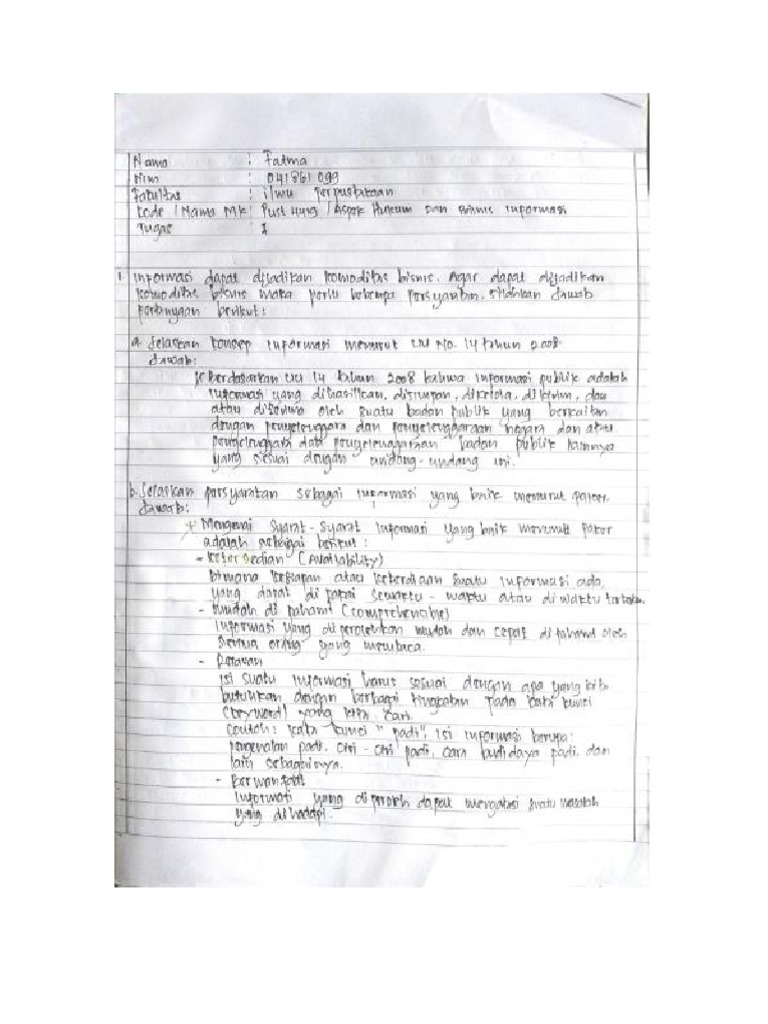 Nama : Fatma
Nim : 041861099
Fakultas : ilmu perpustakaan
Kode / Nama MK : Pust 4119 / Aspek Hukum dan Bisnis Informasi
Tugas : I
1. Informasi dapat dijadikan komoditas bisnis. Agar dapat dijadikan
komoditas bisnis maka perlu beberapa persyaratan. silahkan Jawab
pertanyaan berikut :
a. Jelaskan konsep informasi menurut UU No. 14 tahun 2008.
Jawab :
Berdasarkan UU 14 tahun 2008 bahwa informasi publik adalah
informasi yang dihasilkan, disimpan, dikelola, dikirim, dan
atau diterima oleh suatu badan publik yang berkaitan
dengan penyelenggara dan penyelenggaraan negara dan atau
penyelenggara dan penyelenggaraan badan publik lainnya
yang sesuai dengan undang-undang ini.
b. Jelaskan persyaratan sebagai informasi yang baik menurut pakar.
Jawab :
Mengenai syarat-syarat informasi yang baik menurut pakar
adalah sebagai berikut :
- Ketersedian (Availability)
Dimana kesiapan atau suatu informasi ada,
yang dapat di pakai sewaktu-waktu atau di waktu
- Mudah di pahami (comprehensible)
Informasi yang di perolehkan mudah dan cepat di pahami oleh
semua orang yang membaca.
- Relavan
Isi suatu informasi harus sesuai dengan apa yang kita
butuhkan dengan berbagai tingkatan pada kata kunci
(keyword) yang kita cari.
Contoh : kata kunci "padi", isi informasi berupa :
pengenalan padi, ciri-ciri padi, cara budidaya padi, dan
lain sebagainya.
- Bermanfaat
Informasi yang diperoleh dapat mengatasi suatu masalah
yang dihadapi.